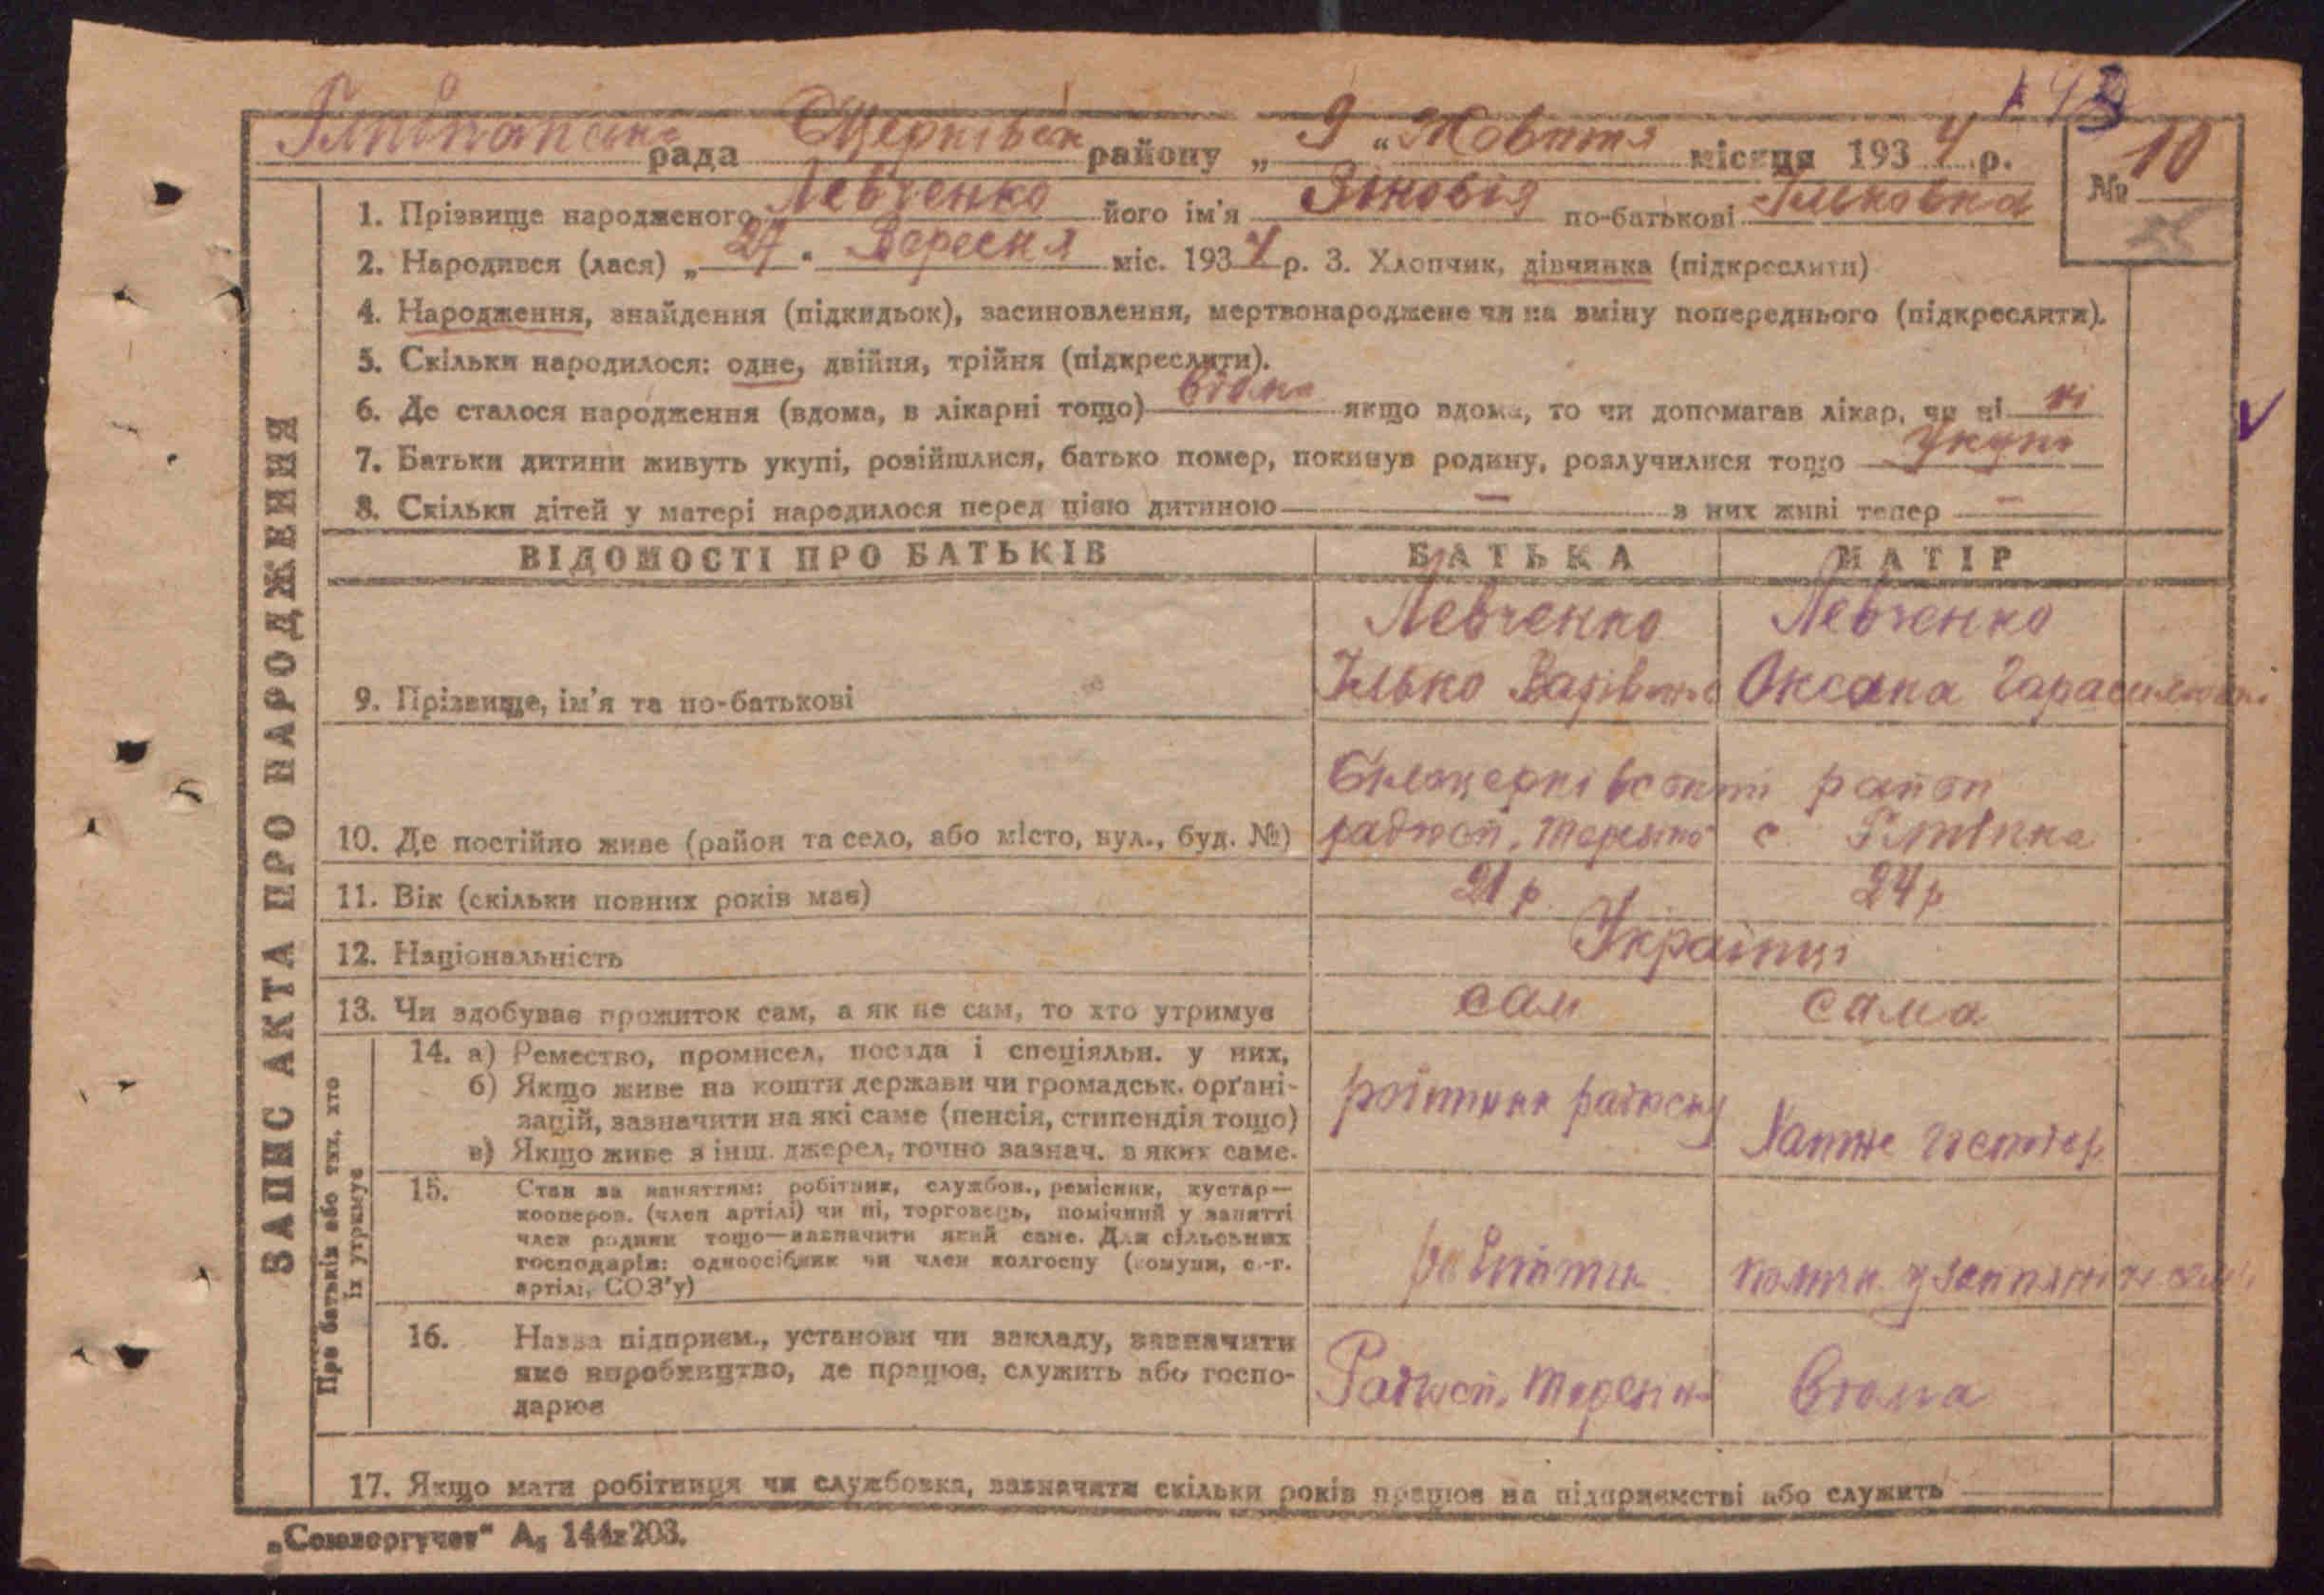 рада Церківськ району „ 9 " Жовтня місяця 1934 р.
№ 10
1. Прізвище народженого Левченко його ім'я Зіновія по-батькові Ільковна
2. Народився (лася) „ 27 " Вересня міс. 1934 р. 3. Хлопчик, дівчинка (підкреслити)
4. Народження, знайдення (підкидьок), засиновлення, мертвонароджене чи на зміну попереднього (підкреслити).
5. Скільки народилося: одне, двійня, трійня (підкреслити).
6. Де сталося народження (вдома, в лікарні тощо) вдома якщо вдома, то чи допомагав лікар, чи ні ні
7. Батьки дитини живуть укупі, розійшлися, батько помер, покинув родину, розлучилися тощо Укупі
8. Скільки дітей у матері народилося перед цією дитиною — з них живі тепер —
ЗАПИС АКТА ПРО НАРОДЖЕННЯ
ВІДОМОСТІ ПРО БАТЬКІВ БАТЬКА МАТІР
Левченко Левченко
9. Прізвище, ім'я та по-батькові Ілько Оксана
район
10. Де постійно живе (район та село, або місто, вул., буд. №) радгосп. с.
11. Вік (скільки повних років має) 21 р. 24 р
12. Національність Українці
13. Чи здобуває прожиток сам, а як не сам, то хто утримує сам сама
Про батьків або тих, хто їх утримує
14. а) Ремество, промисел, посада і спеціяльн. у них,
б) Якщо живе на кошти держави чи громадськ. орґані-
зацій, зазначити на які саме (пенсія, стипендія тощо)
в) Якщо живе з інш. джерел, точно зазнач. з яких саме.
робітник радгоспу Хатнє господар.
15. Стан за заняттям: робітник, службов., ремісник, кустар—
кооперов. (член артілі) чи ні, торговець, помічний у занятті
член родини тощо—зазначити який саме. Для сільських
господарів: одноосібник чи член колгоспу (комуни, с.-г.
артілі, СОЗ'у)
робітник
16. Назва підприєм., установи чи закладу, зазначити
яке виробництво, де працює, служить або госпо-
дарює
Радгосп. вдома
17. Якщо мати робітниця чи службовка, зазначити скільки років працює на підприємстві або служить
„Союзоргучет" А₅ 144х203.